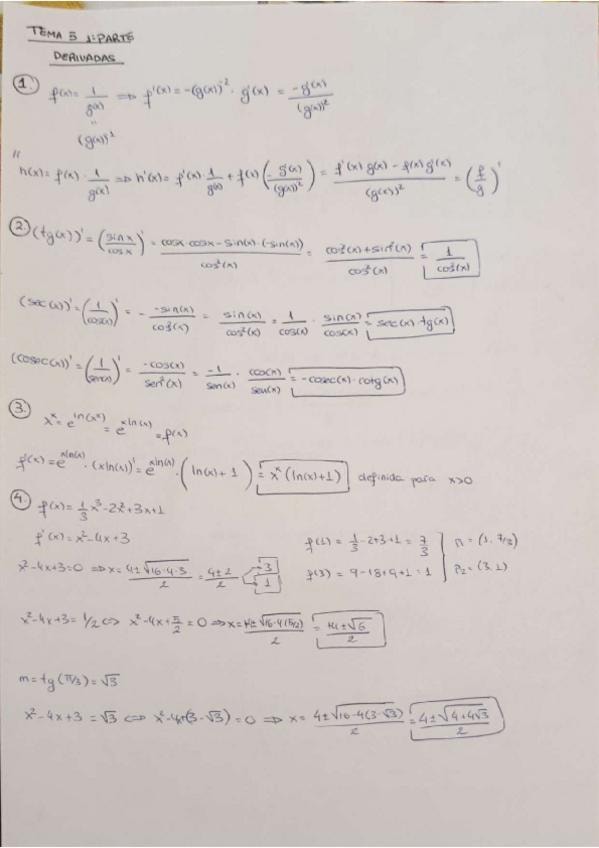 TEMA 5 1ª PARTE
DERIVADAS
1. f(x) = 1/g(x) ⟹ f'(x) = -(g(x))^-2 · g'(x) = -g'(x)/(g(x))^2
"
(g(x))^-1
"
h(x) = f(x) · 1/g(x) ⟹ h'(x) = f'(x) · 1/g(x) + f(x) (-g'(x)/(g(x))^2) = (f'(x) g(x) - f(x) g'(x))/(g(x))^2 = (f/g)'
2. (tg(x))' = (sinx/cosx)' = (cosx·cosx - sin(x)·(-sin(x)))/cos²(x) = (cos²(x) + sin²(x))/cos²(x) = 1/cos²(x)
(sec(x))' = (1/cos(x))' = - -sin(x)/cos²(x) = sin(x)/cos²(x) = 1/cos(x) · sin(x)/cos(x) = sec(x)·tg(x)
(cosec(x))' = (1/sen(x))' = -cos(x)/sen²(x) = -1/sen(x) · cos(x)/sen(x) = -cosec(x)·cotg(x)
3. x^x = e^ln(x^x) = e^xln(x) = f(x)
f'(x) = e^xln(x) · (xln(x))' = e^xln(x) · (ln(x) + 1) = x^x (ln(x)+1) definida para x>0
4. f(x) = 1/3 x³ - 2x² + 3x + 1
f'(x) = x² - 4x + 3
f(1) = 1/3 - 2 + 3 + 1 = 7/3
x² - 4x + 3 = 0 ⟹ x = (4 ± √16-4·3)/2 = (4 ± 2)/2 3 1
f(3) = 9 - 18 + 9 + 1 = 1
P1 = (1, 7/3)
P2 = (3, 1)
x² - 4x + 3 = 1/2 ⟺ x² - 4x + 5/2 = 0 ⟹ x = (4 ± √16-4(5/2))/2 = (+4 ± √6)/2
m = tg(π/3) = √3
x² - 4x + 3 = √3 ⟺ x² - 4x + (3 - √3) = 0 ⟹ x = (4 ± √16-4(3-√3))/2 = (4 ± √4+4√3)/2